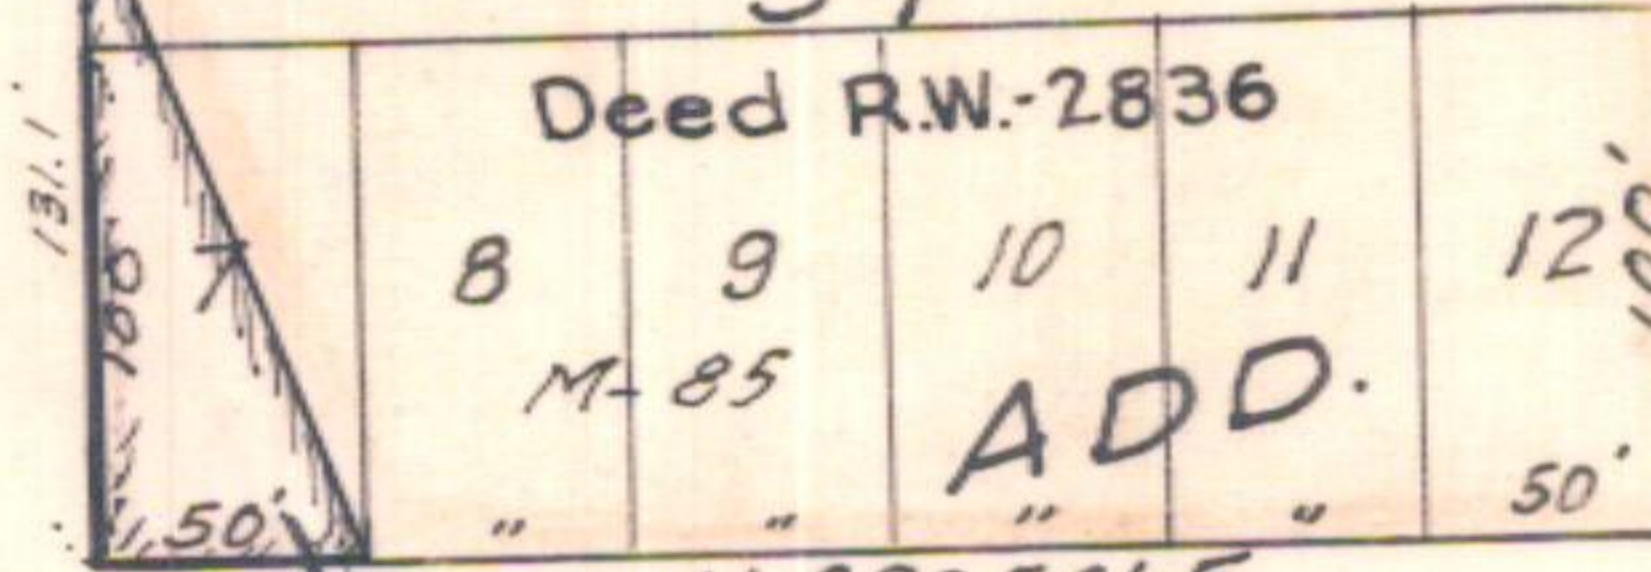 Deed R.W.-2836
131.1'
100
7 8 9 10 11 12
M-85
ADD.
50' " " " " 50'